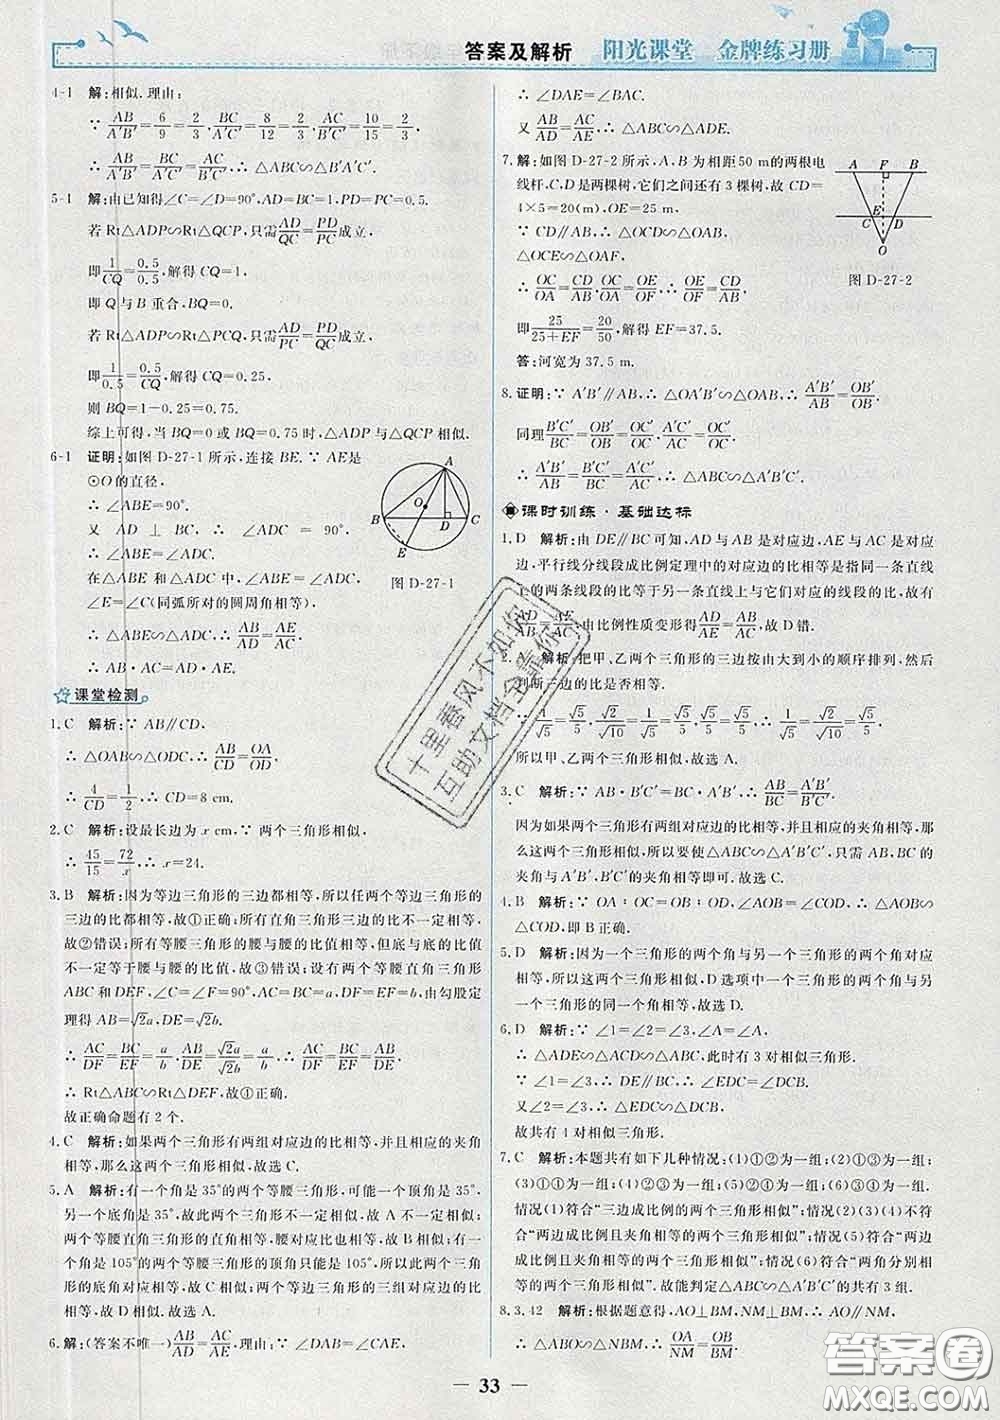 答案及解析 阳光课堂 金牌练习册
4-1 解:相似.理由:
∵ AB/A′B′=6/9=2/3,BC/B′C′=8/12=2/3,AC/A′C′=10/15=2/3,
∴ AB/A′B′=BC/B′C′=AC/A′C′,∴ △ABC∽△A′B′C′.
5-1 解:由已知得∠C=∠D=90°,AD=BC=1,PD=PC=0.5.
若 Rt△ADP∽Rt△QCP,只需AD/QC=PD/PC成立,
即1/CQ=0.5/0.5,解得 CQ=1,
即 Q 与 B 重合,BQ=0.
若 Rt△ADP∽Rt△PCQ,只需AD/PC=PD/QC成立,
即1/0.5=0.5/CQ,解得 CQ=0.25,
则 BQ=1-0.25=0.75.
综上可得,当 BQ=0 或 BQ=0.75 时,△ADP 与△QCP 相似.
6-1 证明:如图 D-27-1 所示,连接 BE.∵ AE是
⊙O 的直径,
∴ ∠ABE=90°.
又 AD ⊥ BC,∴ ∠ADC = 90°,
∴ ∠ABE=∠ADC.
在△ABE 和△ADC 中,∠ABE=∠ADC,
∠E=∠C(同弧所对的圆周角相等),
∴ △ABE∽△ADC,∴ AB/AD=AE/AC,
∴ AB·AC=AD·AE.
A
O
B
D
C
E
图 D-27-1
课堂检测
1.C 解析:∵ AB∥CD,
∴ △OAB∽△ODC,∴ AB/CD=OA/OD.
∴ 4/CD=1/2,∴ CD=8 cm.
2.C 解析:设最长边为 x cm,∵ 两个三角形相似,
∴ 45/15=72/x,∴ x=24.
3.B 解析:因为等边三角形的三边都相等,所以任两个等边三角形的
三边的比都相等,故①正确;所有直角三角形三边的比不一定相等,
故②错误;所有等腰三角形的腰与腰的比值相等,但底与底的比值
不一定等于腰与腰的比值,故③错误;设有两个等腰直角三角形
ABC 和 DEF,∠C=∠F=90°,AC=BC=a,DF=EF=b,由勾股定
理得 AB=√2a,DE=√2b.
∴ AC/DF=BC/EF=a/b.∵AB/DE=√2a/√2b=a/b,∴ AC/DF=BC/EF=AB/DE.
∴ Rt△ABC∽Rt△DEF,故①正确.
故正确命题有 2 个.
4.C 解析:如果两个三角形有两组对应边的比相等,并且相应的夹角
相等,那么这两个三角形相似,故选 C.
5.A 解析:有一个角是 35°的两个等腰三角形,可能一个顶角是 35°,
另一个底角是 35°,故此两个三角形不一定相似,故选 A.由于所有
两个等腰直角三角形的直角相等,对应边成比例也相等,故 B 相似;有一
个角是 105°的两个等腰三角形的顶角只能是 105°,所以此两个三角
形的底角对应相等,故 C 相似;两个等边三角形的三组对应边的比
相等,故 D 相似.故选 A.
6.解:(答案不唯一)AB/AD=AC/AE.理由:∵ ∠DAB=∠CAE,
∴ ∠DAE=∠BAC.
又 AB/AD=AC/AE,∴ △ABC∽△ADE.
7.解:如图 D-27-2 所示,A,B 为相距 50 m 的两根电
线杆,C,D 是两棵树,它们之间还有 3 棵树,故 CD=
4×5=20(m),OE=25 m.
∵ CD∥AB,∴ △OCD∽△OAB,
△OCE∽△OAF,
∴ OC/OA=CD/AB,OC/OA=OE/OF,∴ OE/OF=CD/AB,
即25/(25+EF)=20/50,解得 EF=37.5.
答:河宽为 37.5 m.
A F B
C E D
O
图 D-27-2
8.证明:∵ A′B′∥AB,∴ △OA′B′∽△OAB,∴ A′B′/AB=OB′/OB.
同理B′C′/BC=OB′/OB=OC′/OC,A′C′/AC=OC′/OC.
∴ A′B′/AB=B′C′/BC=A′C′/AC,∴ △ABC∽△A′B′C′.
课时训练·基础达标
1.D 解析:由 DE∥BC 可知,AD 与 AB 是对应边,AE 与 AC 是对应
边,平行线分线段成比例定理中的对应边的比相等是指同一条直线
上的两条线段的比等于另一条直线上与它们对应的线段的比,故有
AD/AB=AE/AC;由比例性质变形得AD/AE=AB/AC,故 D 错.
2.A 解析:把甲、乙两个三角形的三边按由大到小的顺序排列,然后
判断三边的比是否相等.
∴ 1/√5=√5/5,√2/√10=1/√5=√5/5,√5/5=√5/5,∴ 1/√5=√2/√10=√5/5,
所以甲、乙两个三角形相似.故选 A.
3.C 解析:∵ AB·B′C′=BC·A′B′,∴ AB/BC=A′B′/B′C′.
因为如果两个三角形有两组对应边的比相等,并且相应的夹角相等,那
么这两个三角形相似,所以要使△ABC∽△A′B′C′,只需 AB,BC 的
夹角与 A′B′,B′C′的夹角相等即可.故选 C.
4.B 解析:∵ OA∶OC=OB∶OD,∠AOB=∠COD,∴ △AOB∽
△COD,即 B 正确.
5.D 解析:因为一个三角形的两个角与另一个三角形的两个角对应
相等,所以这两个三角形相似,D 选项中一个三角形的两个角与另
一个三角形的同一个角相等,故选 D.
6.D 解析:∵ ∠1=∠2=∠3,∠A=∠A,
∴ △ADE∽△ACD∽△ABC,此时有 3 对相似三角形.
∵ ∠1=∠3,∴ DE∥BC,∴ ∠EDC=∠DCB.
又∠2=∠3,∴ △EDC∽△DCB.
故共有 4 对相似三角形.
7.C 解析:本题共有如下几种情况:(1)①②为一组;(2)①③为一组;
情况(1)符合“三边成比例的两个三角形相似”;情况(2)(3)(4)不符
合“两边成比例且夹角相等的两个三角形相似”;情况(5)符合“两边
成比例且夹角相等的两个三角形相似”;情况(6)符合“两角分别相
等的两个三角形相似”.故能判定△ABC∽△A′B′C′的共有 3 组.
8.3.42 解析:根据题意得,AO⊥BM,NM⊥BM,∴ AO∥NM,
∴ △ABO∽△NBM,∴ OA/NM=OB/BM.
十里春风不如你
互助文档全靠你
答案圈
MXQE.COM
— 33 —